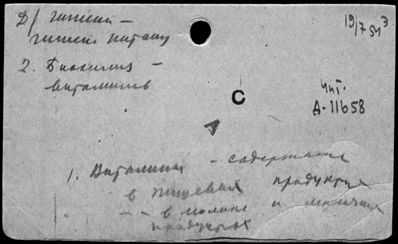 Д/ гигиен –
гигиена питания
19/7 51 Э
2. Биохимия –
витамины
Чит.
А-11658
С
1. Витамины – содержание
в пищевых продуктах
– – в молоке и молочных
продуктах